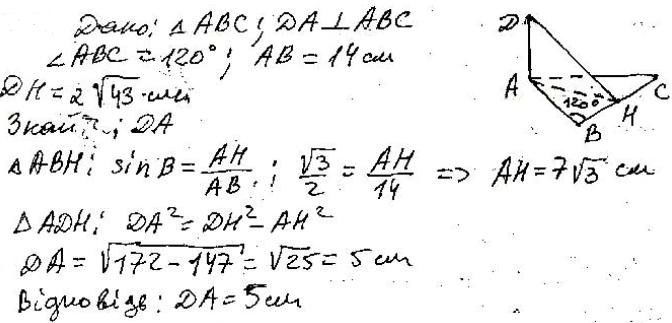 Дано: △ABC; DA⊥ABC
∠ABC = 120°; AB = 14 см
DH = 2√43 см
Знайт.; DA
△ABH: sin B = AH/AB; √3/2 = AH/14 => AH = 7√3 см
△ADH: DA² = DH² – AH²
DA = √(172 – 147) = √25 = 5 см
Відповідь: DA = 5 см
D
A
C
120°
H
B